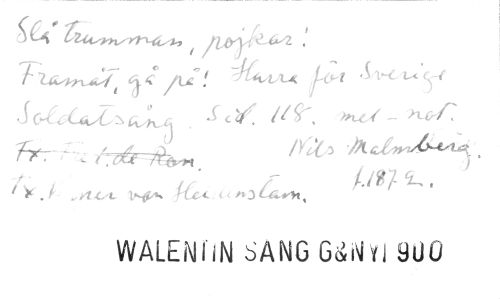 Slå trumman, pojkar!
Framåt, gå på! Hurra för Sverige
Soldatsång. Sid. 118. mel-not.
Tx. de Ron. Nils Malmberg.
Tx. Werner von Heidenstam. f.1872.
WALENTIN SANG G&NYI 900